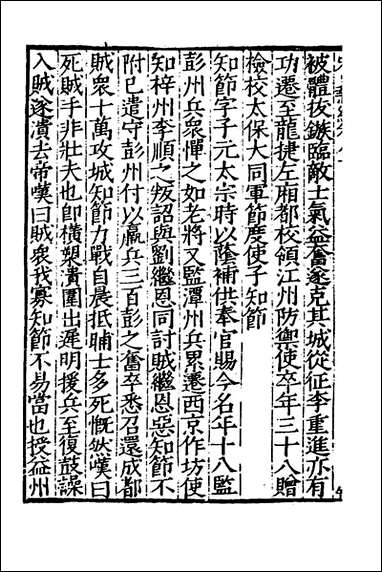 被體抜鏃臨敵士氣益奮遂克其城從征李重進亦有
功遷至龍捷左廂都校領江州防禦使卒年三十八贈
檢校太保大同軍節度使子知節
知節字子元太宗時以蔭補供奉官賜今名年十八監
彭州兵衆憚之如老將又監潭州兵累遷西京作坊使
知梓州李順之叛詔與劉繼恩同討賊繼恩𡨋知節不
附已遣守彭州付以羸兵三百彭之奮卒悉召還成都
賊衆十萬攻城知節力戰自晨抵晡士多死慨然嘆曰
死賊手非壯夫也卽横槊潰圍出遲明援兵至復鼓譟
入賊遂潰去帝嘆曰賊衆我寡知節不易當也授益州